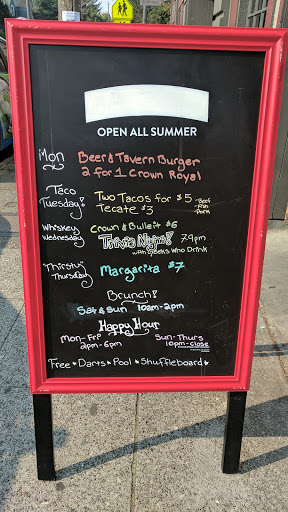 OPEN ALL SUMMER
Mon Beer & Tavern Burger
2 for 1 Crown Royal
Taco Tuesday! Two Tacos for $5 -Beef
-Fish
Tecate $3 -Pork
Whiskey Wednesday Crown & Bulleit $6
Trivia Night! 7-9pm
with Geeks Who Drink
Thirsty Thursday Margarita $7
Brunch!
Sat & Sun 10am-2pm
Happy Hour
Mon-Fri Sun-Thurs
2pm-6pm 10pm-close
Free • Darts • Pool • Shuffleboard •